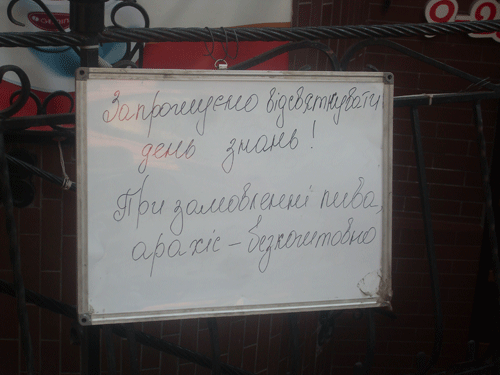 Запрошуємо відсвяткувати
день знань!
При замовленні пива,
арахіс - безкоштовно